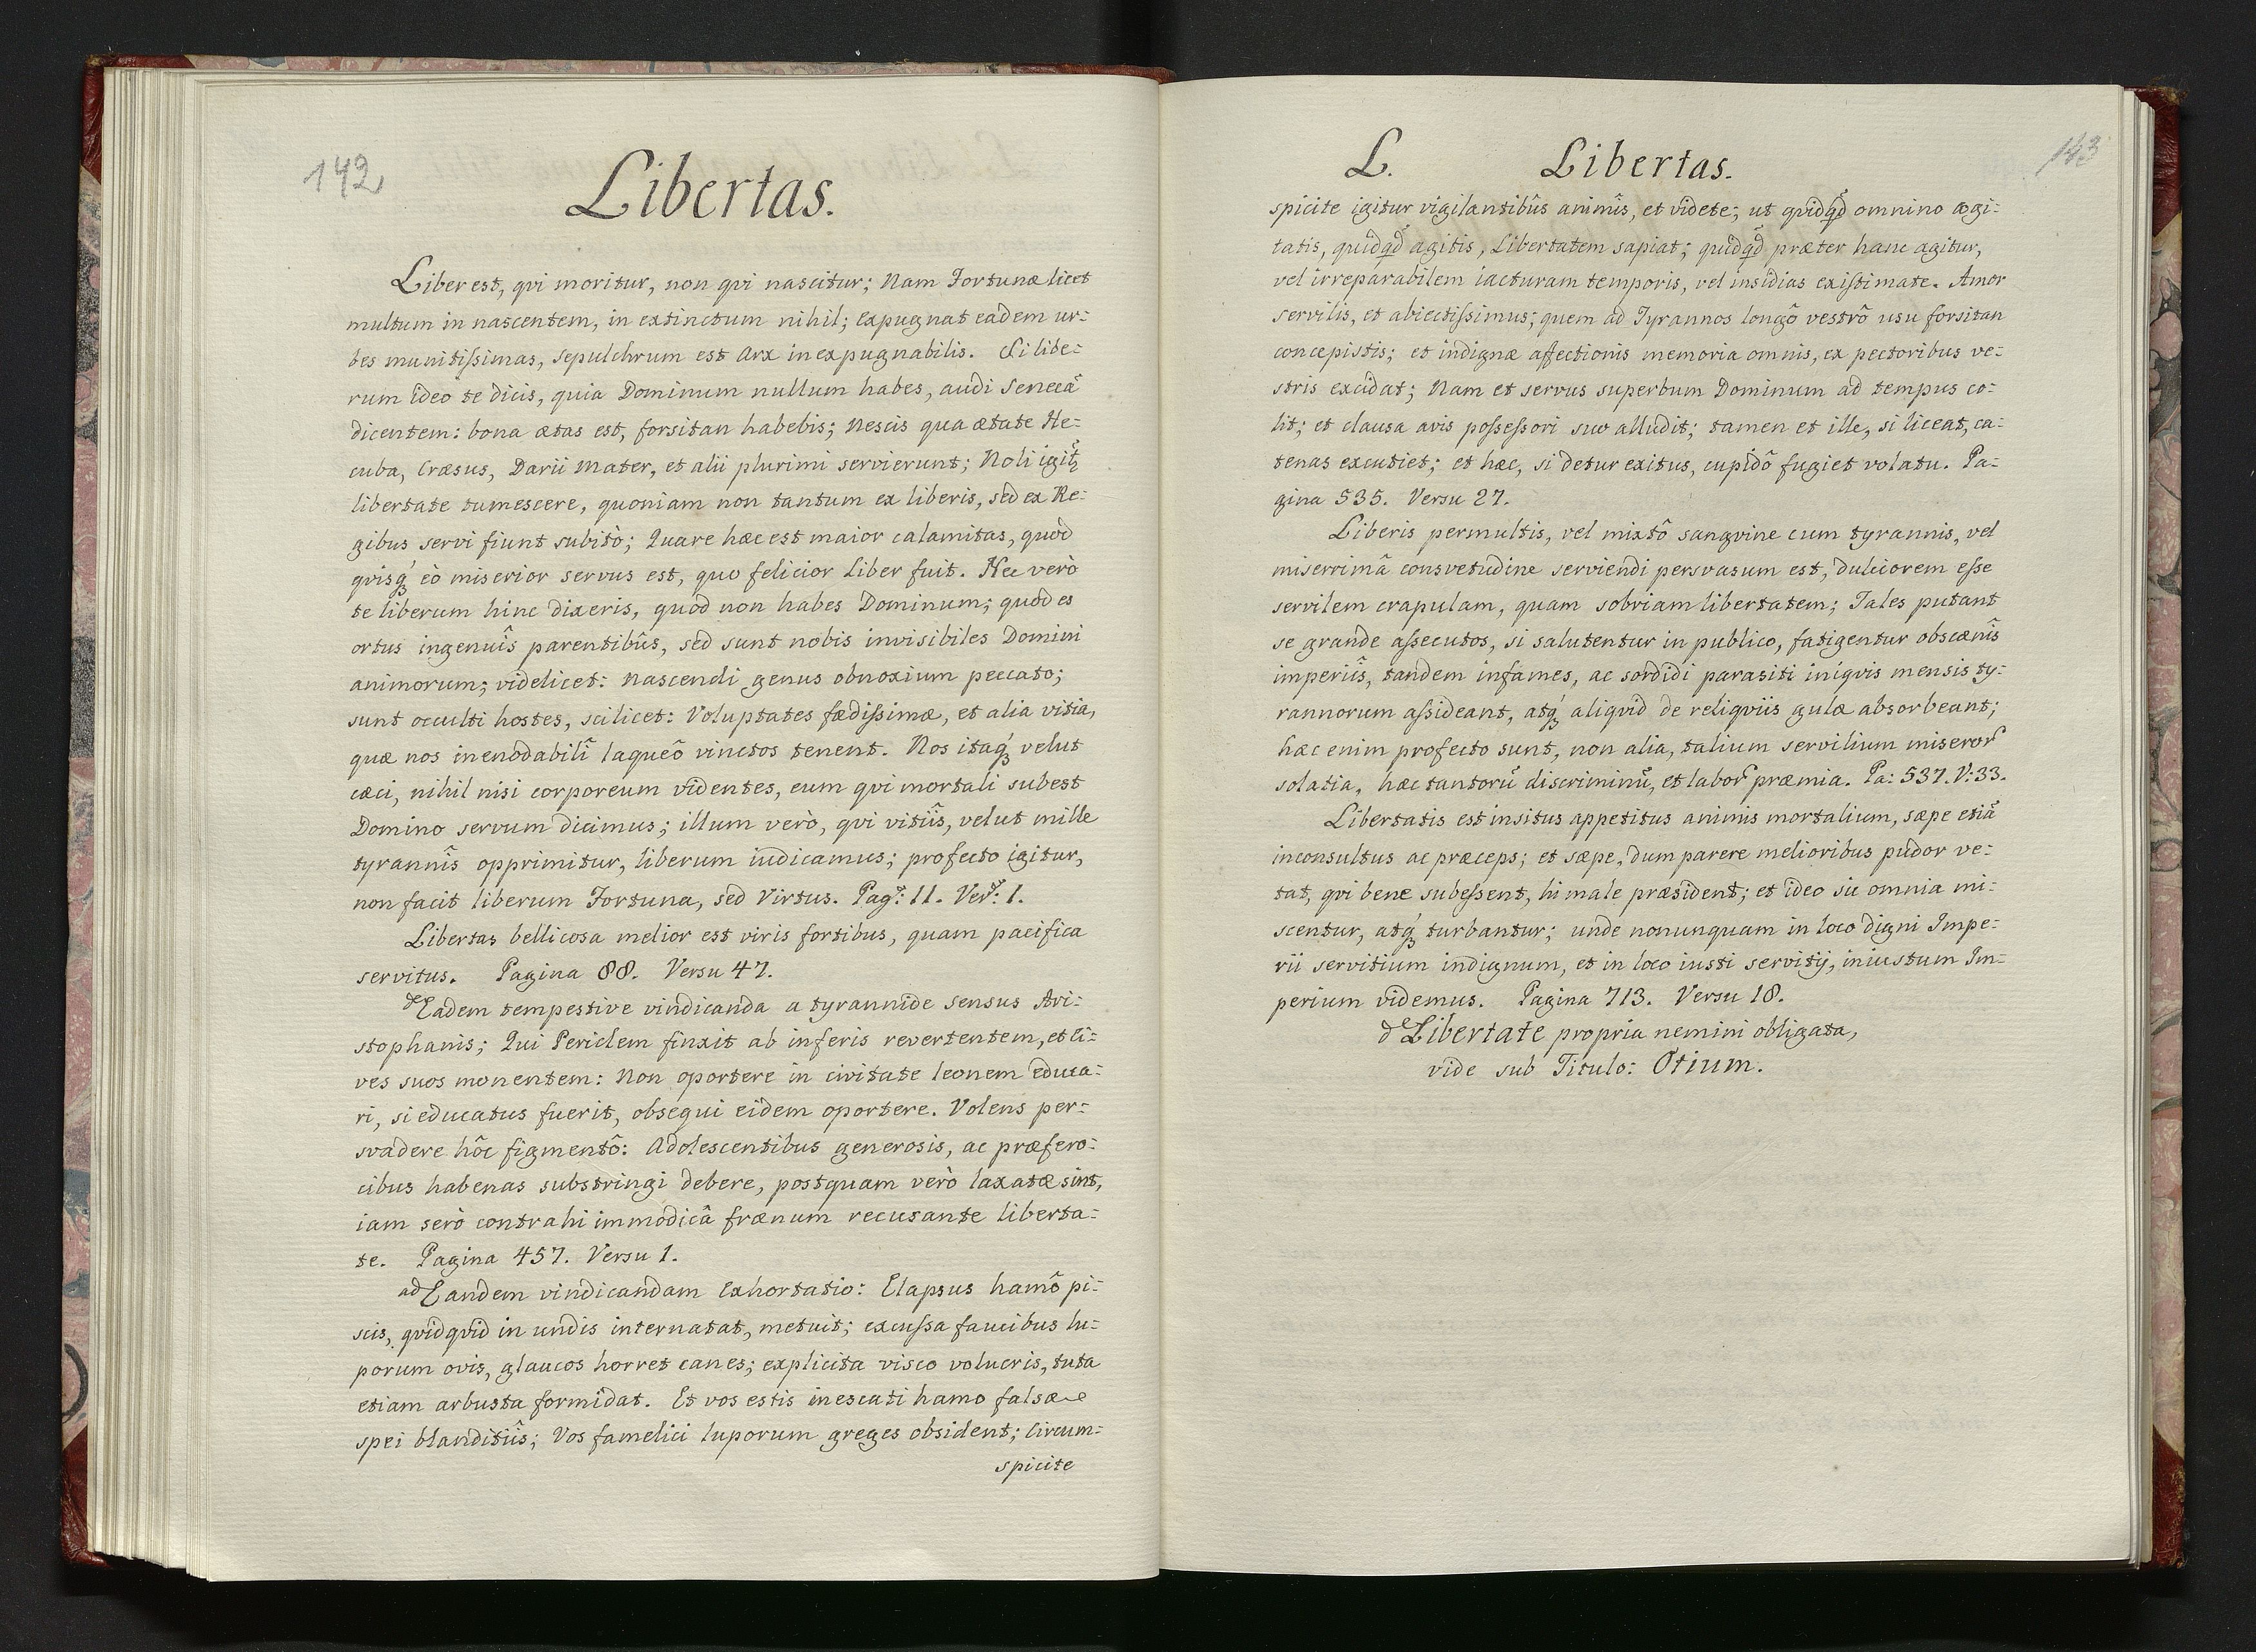 142
Libertas.
Liber est, qvi moritur, non qvi nascitur; Nam Fortunæ licet
multum in nascentem, in extinctum nihil; expugnat eadem ur=
bes munitissimas, sepulchrum est Arx inexpugnabilis. Si libe=
rum ideo te dicis, quia Dominum nullum habes, audi Senecã
dicentem: bona ætas est, forsitan habebis; Nescis qua ætate He=
cuba, Cræsus, Darii Mater, et alii plurimi servierunt; Noli igit̃
libertate tumescere, quoniam non tantum ex liberis, sed ex Re=
gibus servi fiunt subitò; Quare hæc est maior calamitas, quod
qvisq́ʒ eò miserior servus est, quo felicior Liber fuit. Nec verò
te liberum hinc dixeris, quod non habes Dominum; quod es
ortus ingenuîs parentibûs, sed sunt nobis invisibiles Domini
animorum; videlicet: Nascendi genus obnoxium peccato;
sunt occulti hostes, scilicet: Voluptates fædissimæ, et alia vitia,
quæ nos inenodabilî laqueô vinctos tenent. Nos itaq́ʒ velut
cæci, nihil nisi corporeum videntes, eum qvi mortali subest
Domino servum dicimus; illum verò, qvi vitiîs, velut mille
tyrannîs opprimitur, liberum iudicamus; profecto igitur,
non facit liberum Fortuna, sed Virtus. Pag: 11. Ver: 1.
Libertas bellicosa melior est viris fortibus, quam pacifica
servitus. Pagina 88. Versu 47.
de Eadem tempestive vindicanda a tyrannide sensus Ari=
stophanis; Qui Periclem finxit ab inferis revertentem, et Ci=
ves suos monentem: Non oportere in civitate leonem educa=
ri, si educatus fuerit, obsequi eidem oportere. Volens per=
svadere hôc figmentô: Adolescentibus generosis, ac præfero=
cibus habenas substringi debere, postquam verò laxatæ sint,
iam serò contrahi immodicâ frænum recusante liberta=
te. Pagina 457. Versu 1.
ad Eandem vindicandam Exhortatio: Elapsus hamô pi=
scis, qvidqvid in undis internatat, metuit; excussa faucibus lu=
porum ovis, glaucos horret canes; explicita visco volucris, tuta
etiam arbusta formidat. Et vos estis inescati hamo falsæ
spei blanditiîs; Vos famelici luporum greges obsident; Circum=
spicite
143
L. Libertas.
spicite igitur vigilantibûs animîs, et videte; ut qvidqd̃ omnino cogi=
tatis, quidqd̃ agitis, Libertatem sapiat; quidqd̃ præter hanc agitur,
vel irreparabilem iacturam temporis, vel insidias existimate. Amor
servilis, et abiectissimus; quem ad Tyrannos longô vestrô usu forsitan
concepistis; et indignæ affectionis memoria omnis, ex pectoribus ve=
stris excidat; Nam et servus superbum Dominum ad tempus co=
lit; et clausa avis possessori suo alludit; tamen et ille, si liceat, ca=
tenas excutiet; et hæc, si detur exitus, cupidô fugiet volatu. Pa=
gina 535. Versu 27.
Liberis permultis, vel mixtô sangvine cum tyrannis, vel
miserrimâ consvetudine serviendi persvasum est, dulciorem esse
servilem crapulam, quam sobriam libertatem; Tales putant
se grande assecutos, si salutentur in publico, fatigentur obscænîs
imperiîs, tandem infames, ac sordidi parasiti iniqvis mensis ty=
rannorum assideant, atq́ʒ aliqvid de reliqviis gulæ absorbeant;
hæc enim profecto sunt, non alia, talium servilium miseror̃
solatia, hæc tantorũ discriminũ, et labor̃ præmia. Pa: 537. V: 33.
Libertatis est insitus appetitus animis mortalium, sæpe etiã
inconsultus ac præceps; et sæpe, dum parere melioribus pudor ve=
tat, qvi bene subessent, hi male præsident; et ideo sic omnia mi=
scentur, atq́ʒ turbantur; unde nonunquam in loco digni Impe=
rii servitium indignum, et in loco iusti servitij, iniustum Im=
perium videmus. Pagina 713. Versu 18.
de Libertate propria nemini obligata,
vide sub Titulo: Otium.